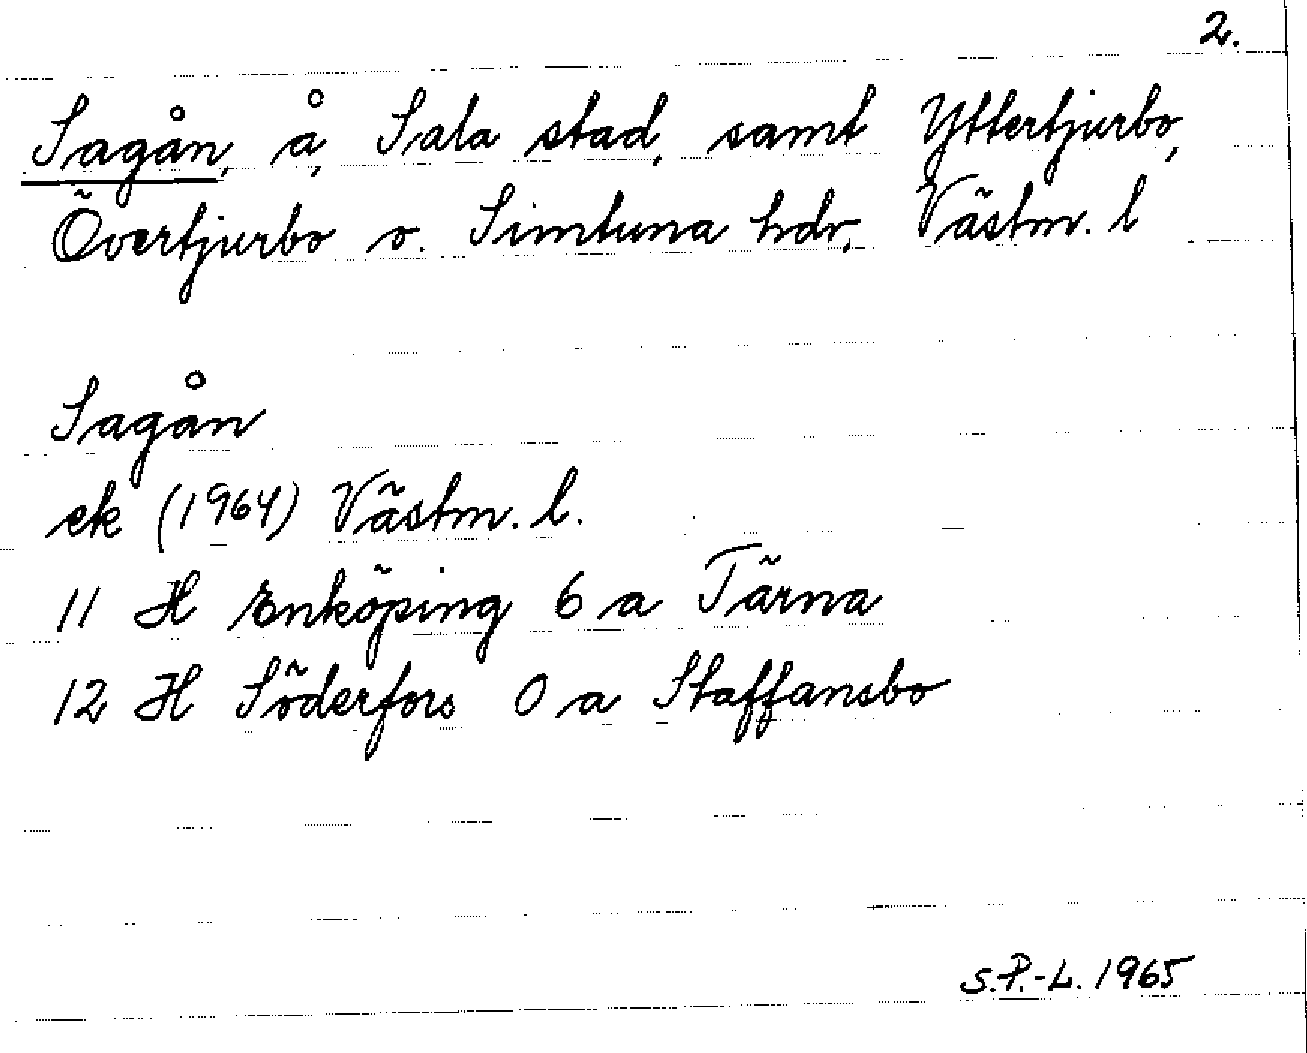 2.
Sagån, å, Sala stad, samt Yttertjurbo,
Övertjurbo o. Simtuna hdr, Västm. l
Sagån
ek (1964) Västm. l.
11 H Enköping 6 a Tärna
12 H Söderfors 0 a Staffansbo
S.P.-L. 1965